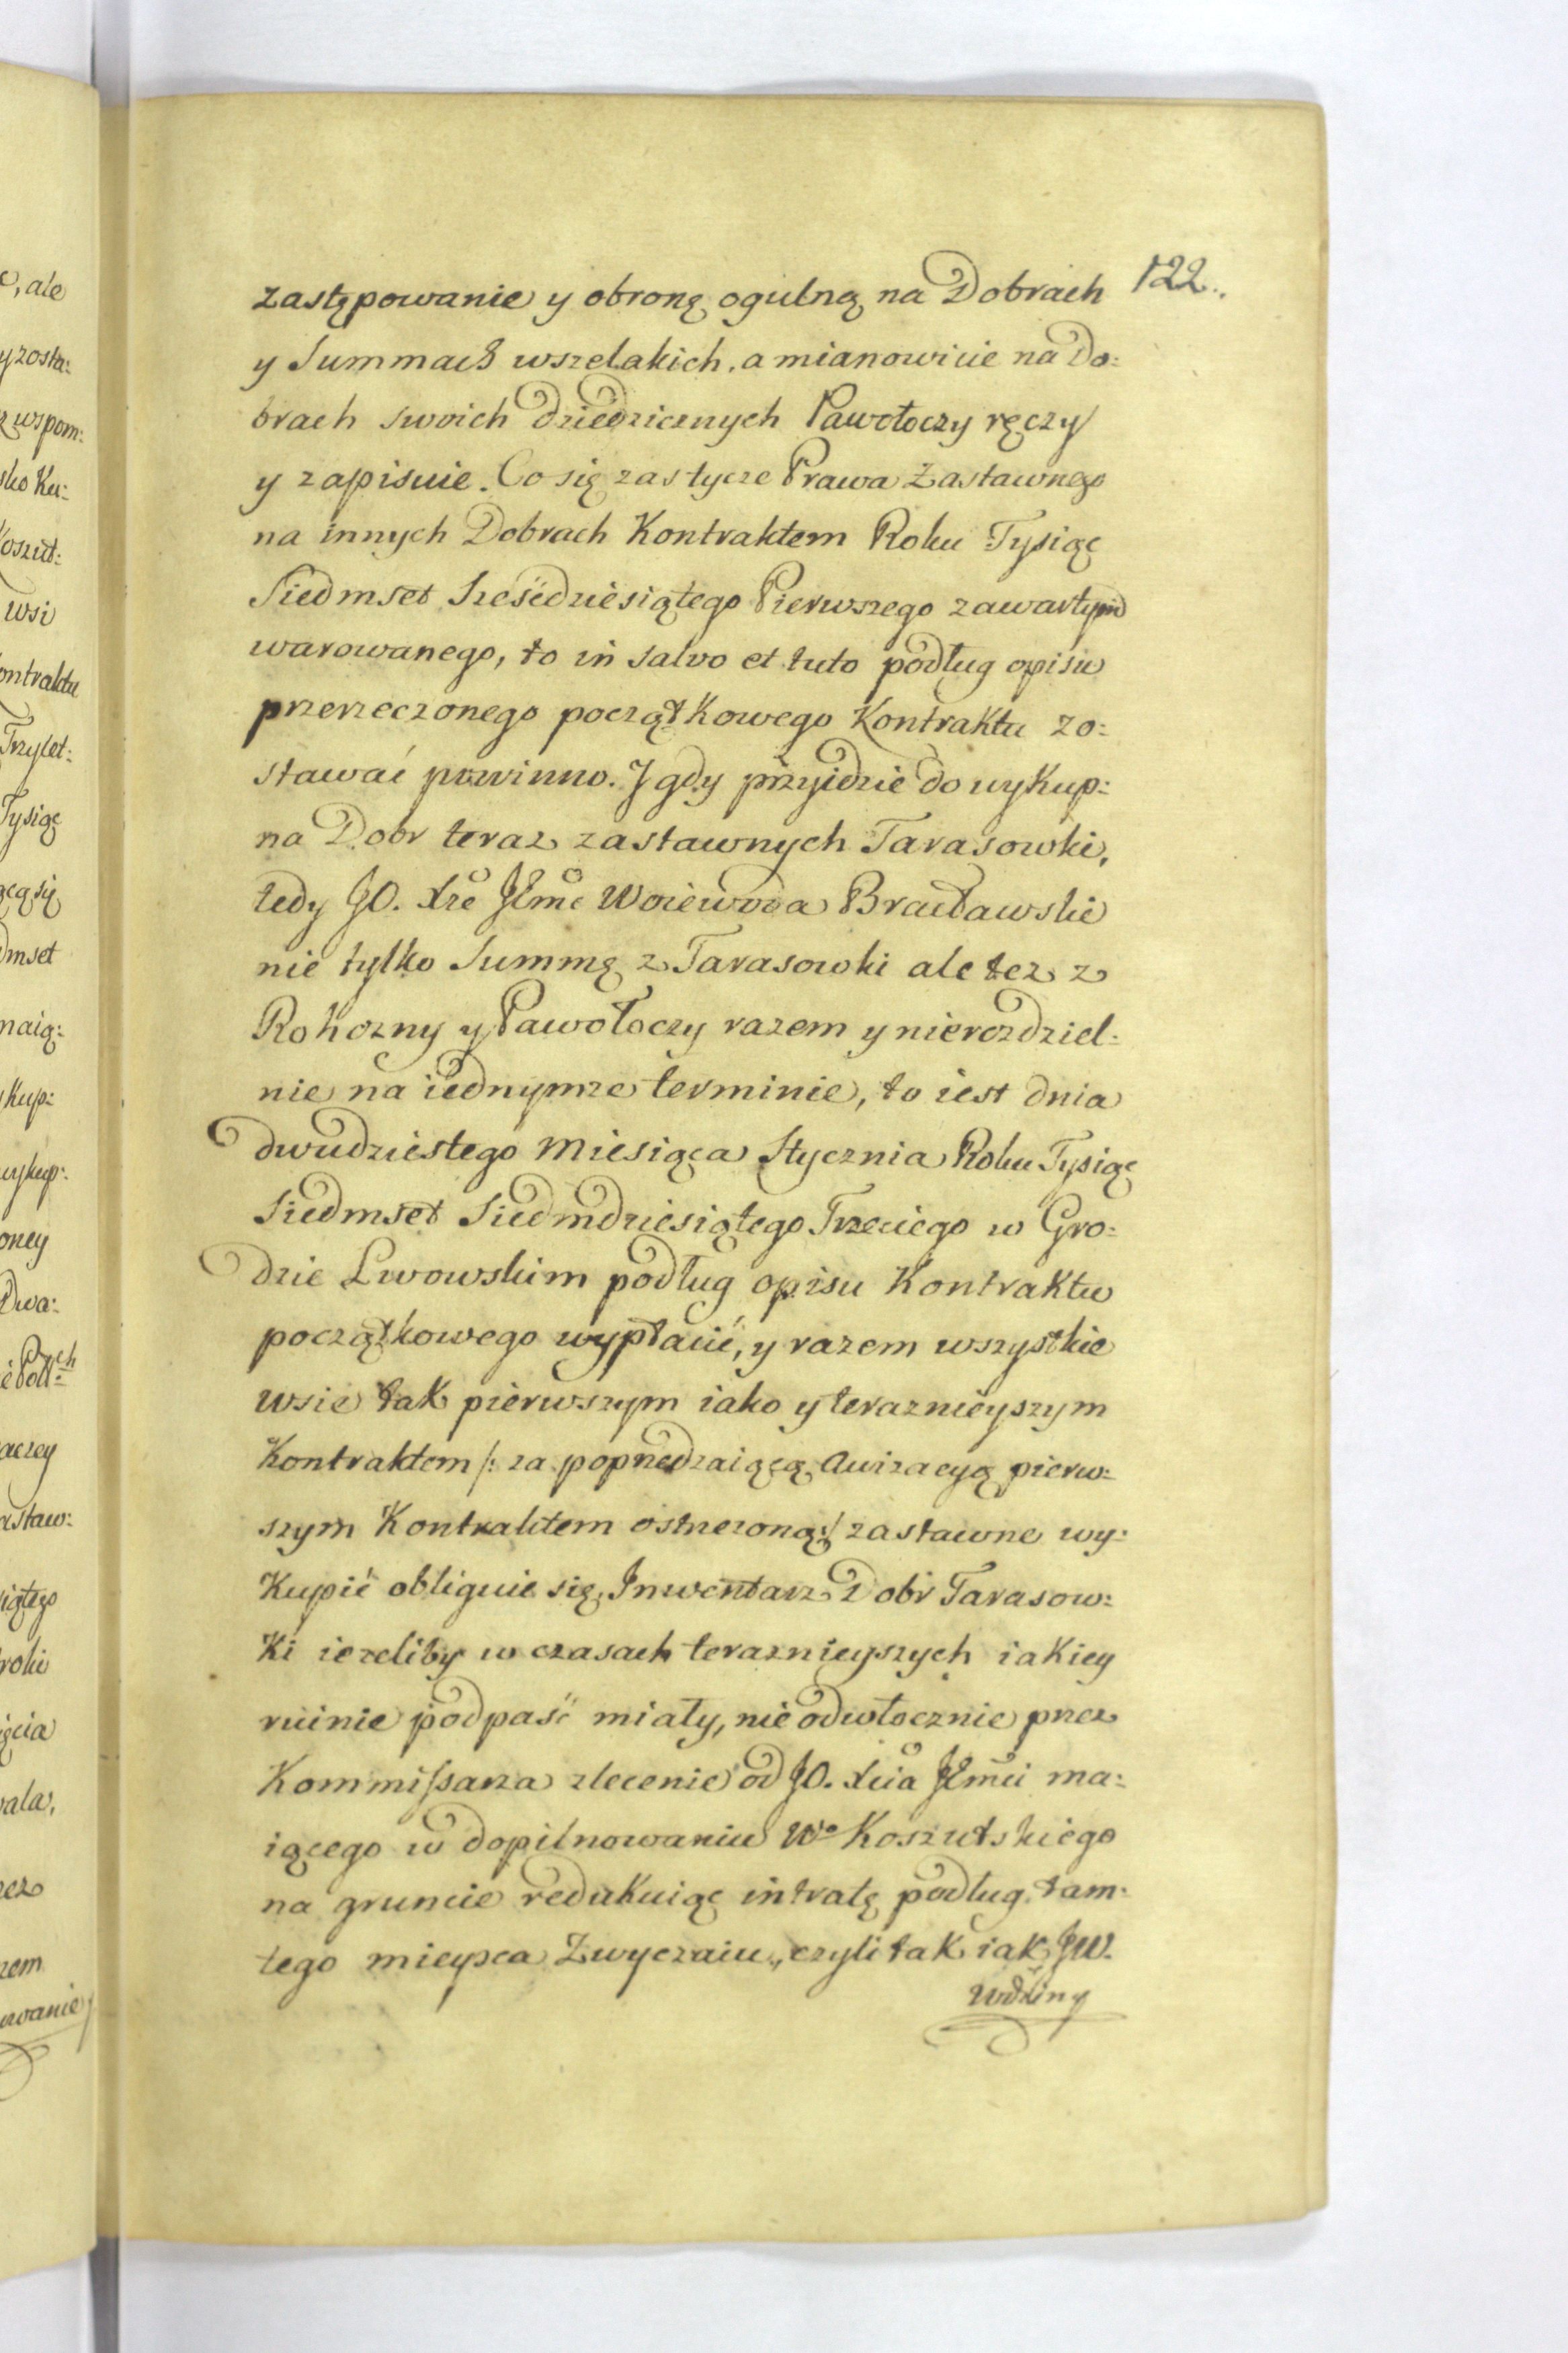 122.
zastępowanie y obronę ogulną na Dobrach
y Summach wszelakich, a mianowicie na Do:
brach swoich dziedzicznych Pawołoczy ręczy
y zapisuie. Co się zastycze Prawa Zastawnego
na innych Dobrach Kontraktem Roku Tysiąc
Siedmset Sześćdziesiątego Pierwszego zawartym
warowanego, to in salvo et tuto podług opisu
przerzeczonego początkowego Kontraktu zo:
stawać powinno. J gdy przyidzie do wykup:
na Dobr teraz zastawnych Tarasowki,
tedy JO. Xże JEmć Woiewoda Bracławski
nie tylko Summę z Tarasowki ale też z
Rohozny y Pawołoczy razem y nierozdziel:
nie na iednymże terminie, to iest dnia
dwudziestego Miesiąca Stycznia Roku Tysiąc
Siedmset Siedmdziesiątego Trzeciego w Gro:
dzie Lwowskim podług opisu Kontraktu
początkowego wypłacić, y razem wszystkie
wsie tak pierwszym iako y teraznieyszym
Kontraktem /: za poprzedzaiącą Awizacyą pierw:
szym Kontraktem ostrzeżoną :/ zastawne wy:
kupić obliguie się. Inwentarz Dobr Tarasow:
ki ieżeliby w czasach teraznieyszych iakiey
ruinie podpaść miały, nieodwłocznie przez
Kommissarza zlecenie od JO. Xcia JEmci ma:
iącego w dopilnowaniu Wo Koszutskiego
na gruncie redukuiąc intratę podług tam:
tego mieysca Zwyczaiu, czyli tak iak JW.